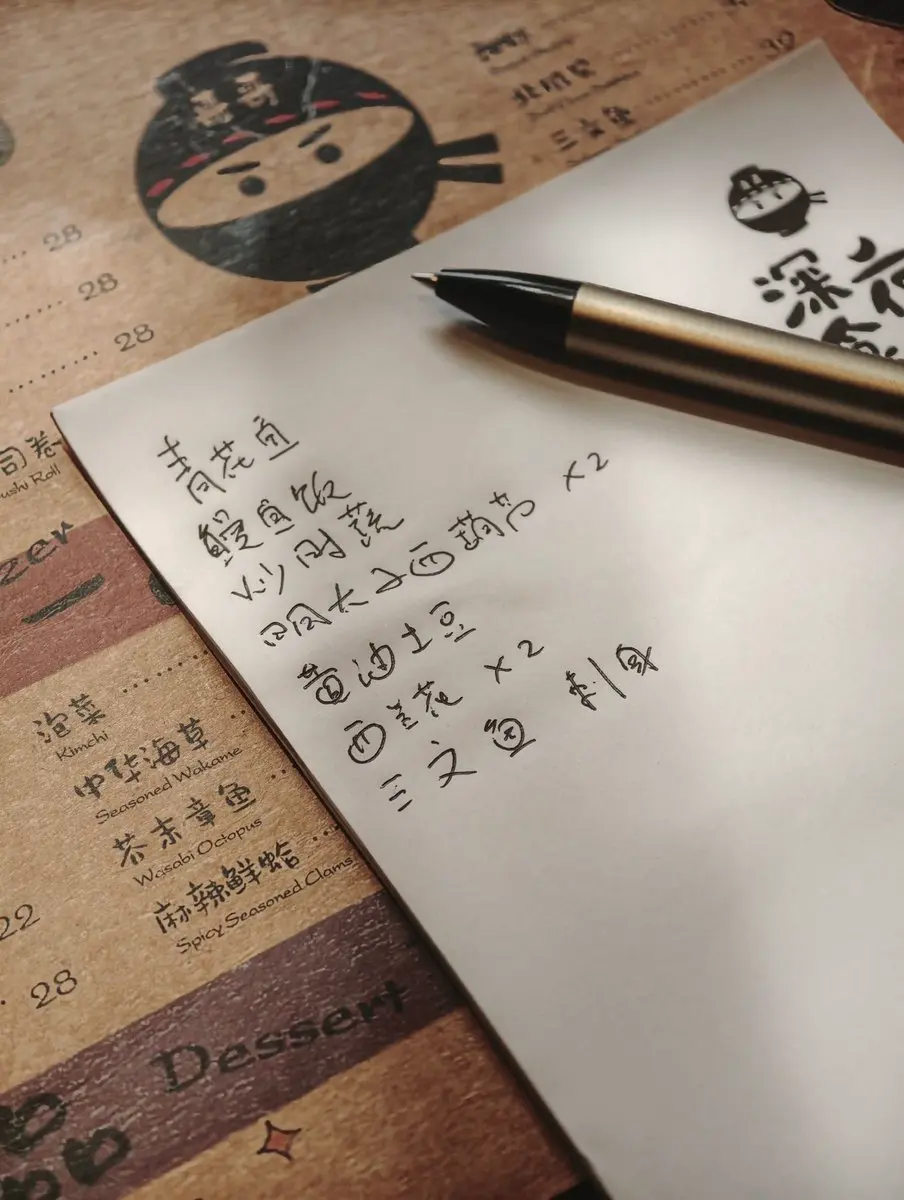 哥哥
三文鱼
28
28
28
深夜
青花鱼
鳗鱼饭
炒时蔬
明太子西葫芦 ×2
黄油土豆
西兰花 ×2
三文鱼 刺身
司卷
ushi Roll
zer
泡菜
Kimchi
中华海草
Seasoned Wakame
芥末章鱼
Wasabi Octopus
麻辣鲜蛤
Spicy Seasoned Clams
22
28
Dessert